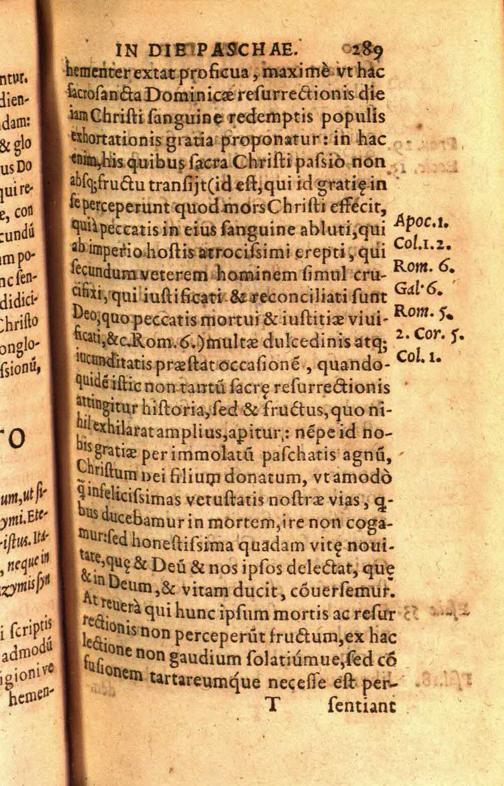 ntur.
dien-
dam:
& glo
us Do
qui re-
e, con
cundū
am po-
nc sen-
didici-
Christo
onglo-
ssionū,
TO
um, ut si-
zymi. Ete-
ristus. Ita-
, neque in
zymis syn
i scriptis
admodū
igionive
hemen-
IN DIE PASCHAE. 289
hementer extat proficua, maximè vt hac
sacrosancta Dominicæ resurrectionis die
iam Christi sanguine redemptis populis
exhortationis gratia proponatur: in hac
enim, his quibus sacra Christi passio non
absq; fructu transijt (id est, qui id gratię in
se perceperunt quod mors Christi effecit,
quià peccatis in eius sanguine abluti, qui
ab imperio hostis atrocissimi erepti, qui
secundum veterem hominem simul cru-
cifixi, qui iustificati & reconciliati sunt
Deo, quo peccatis mortui & iustitiæ viui-
ficati, &c. Rom. 6.) multæ dulcedinis atq;
iucunditatis præstat occasionē, quando-
quidē istic non tantū sacrę resurrectionis
attingitur historia, sed & fructus, quo ni-
hil exhilarat amplius, apitur,: nēpe id no-
bis gratiæ per immolatū paschatis agnū,
Christum Dei filium donatum, vt amodò
q̄ infelicissimas vetustatis nostræ vias, q-
bus ducebamur in mortem, ire non coga-
mur: sed honestissima quadam vitę noui-
tate, quę & Deū & nos ipsos delectat, quę
& in Deum, & vitam ducit, cōuersemur.
At reuerà qui hunc ipsum mortis ac resur
rectionis non perceperūt fructum, ex hac
lectione non gaudium solatiúmue, sed cō
fusionem tartareumque necesse est per-
T sentiant
Apoc. 1.
Col. 1. 2.
Rom. 6.
Gal. 6.
Rom. 5.
2. Cor. 5.
Col. 1.